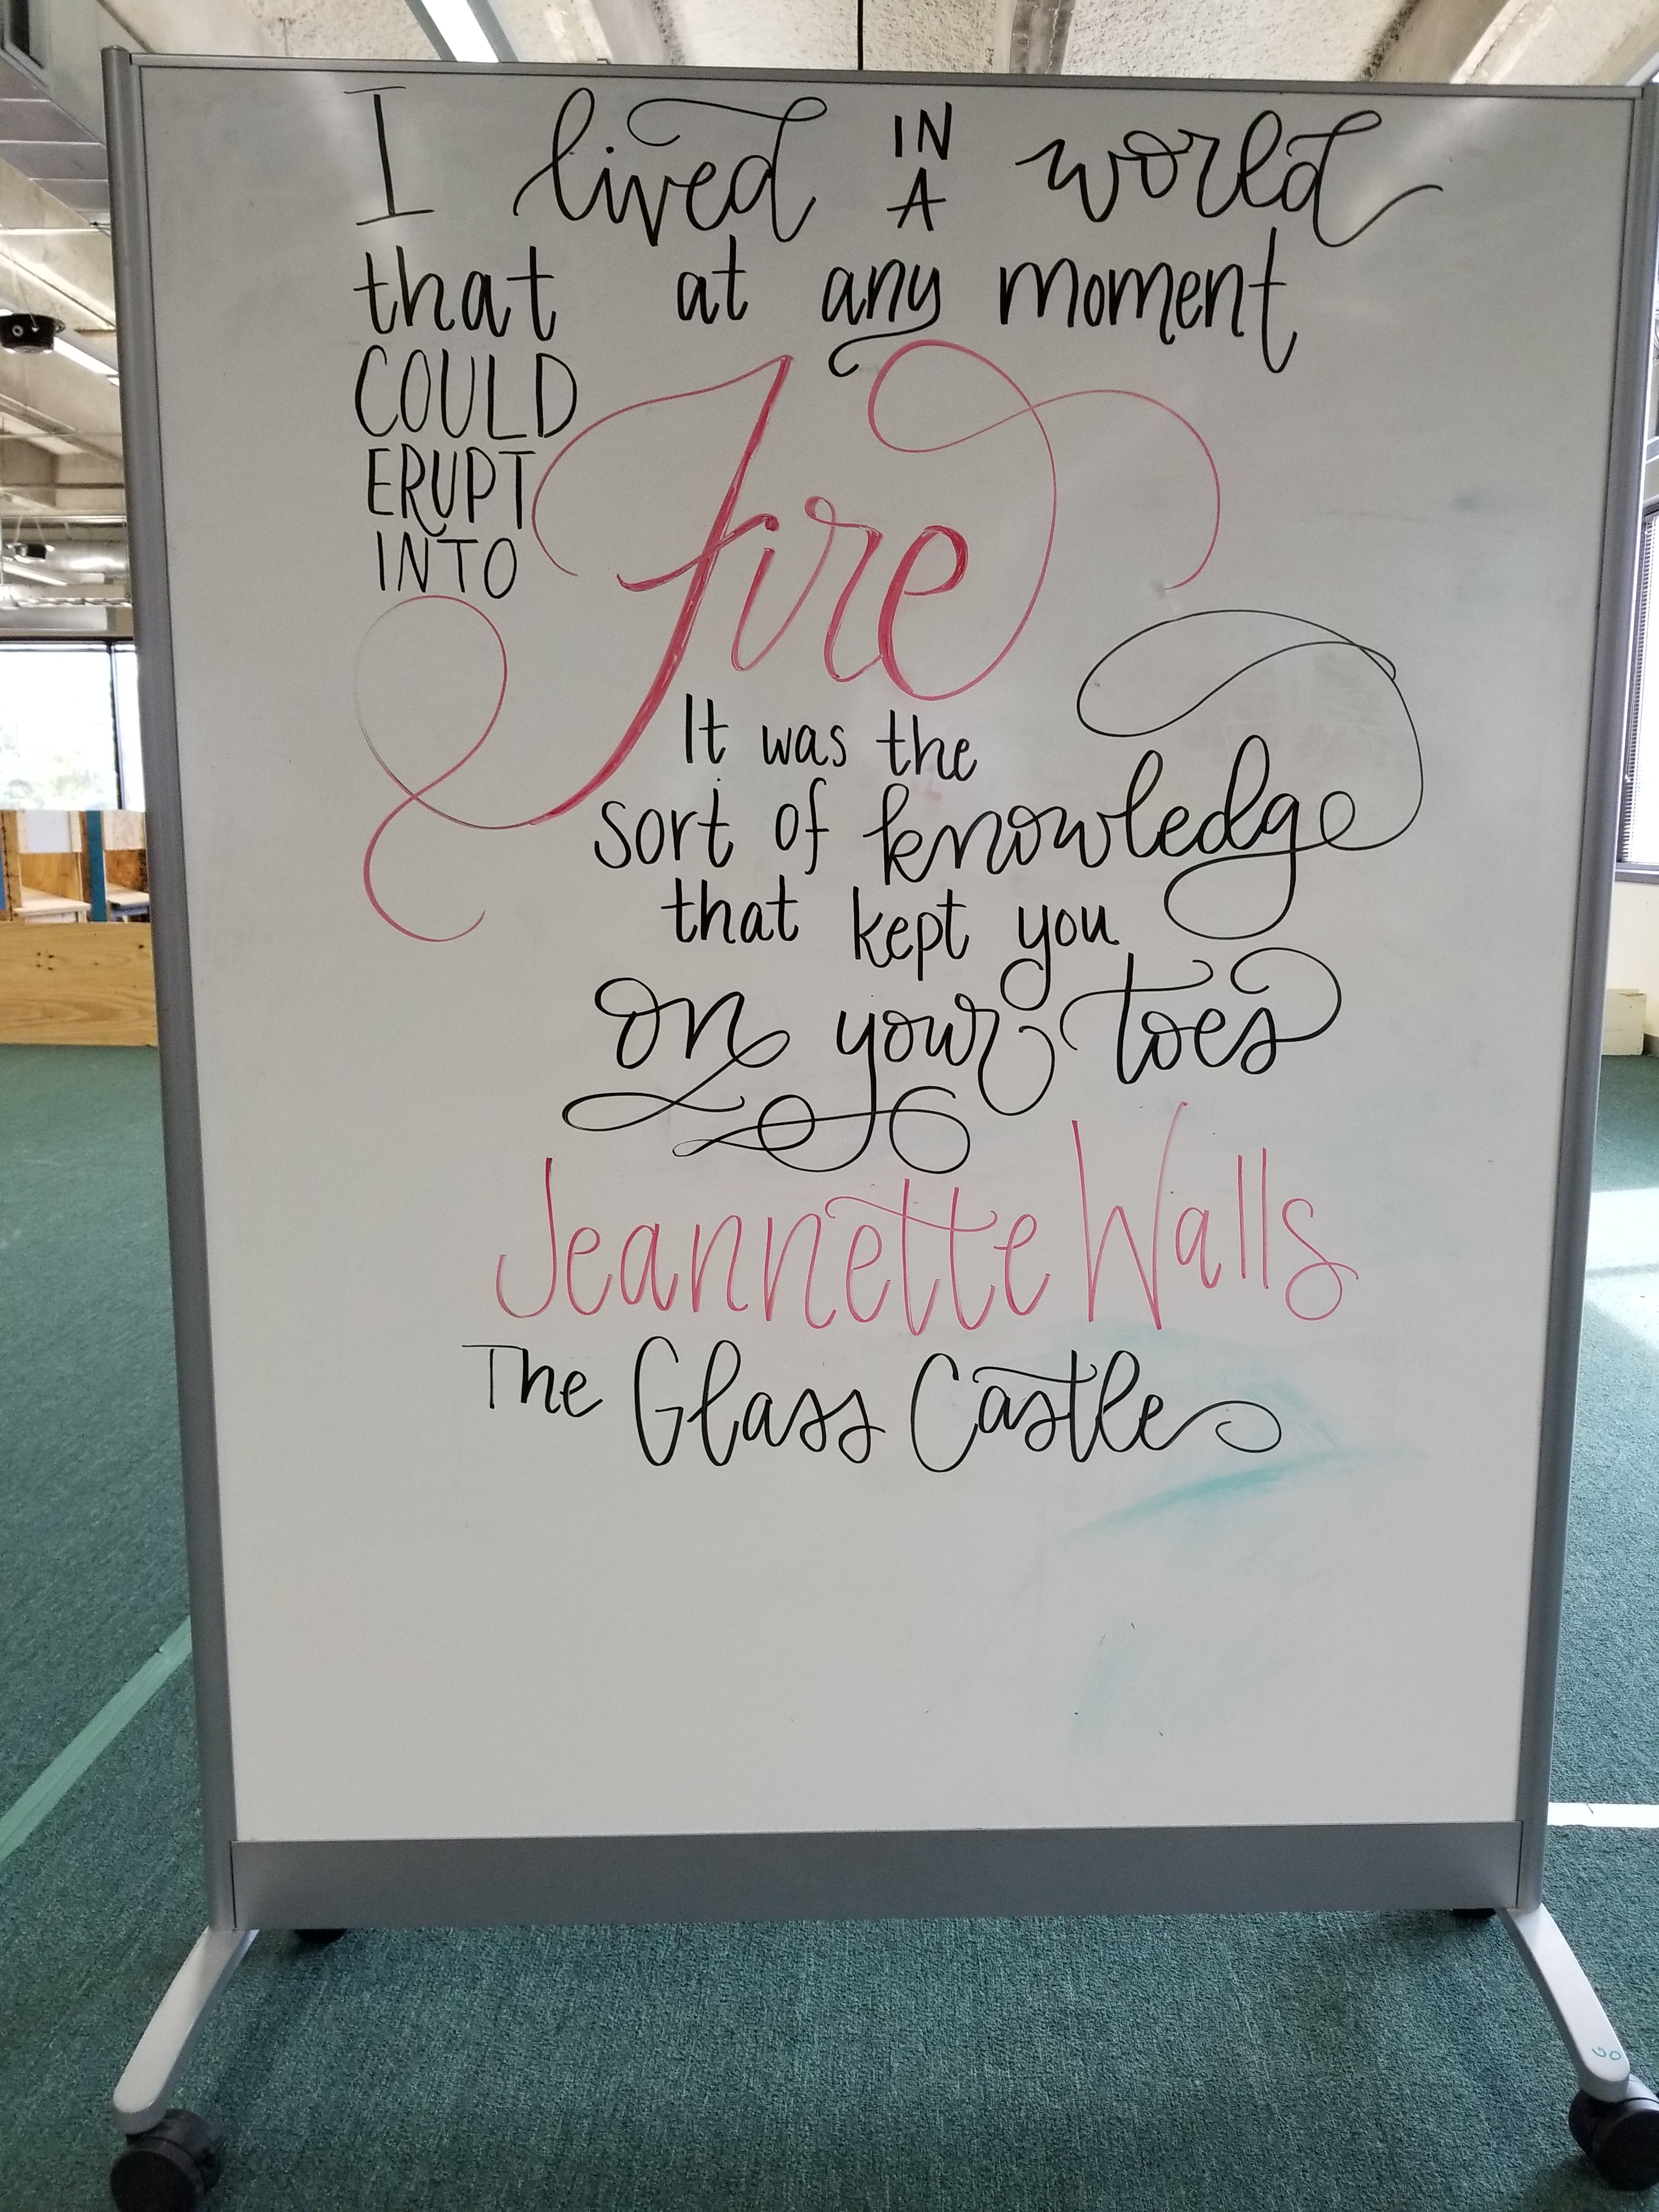 I lived IN A world
that at any moment
COULD
ERUPT
INTO
Fire
It was the
sort of knowledge
that kept you
on your toes
Jeannette Walls
The Glass Castle